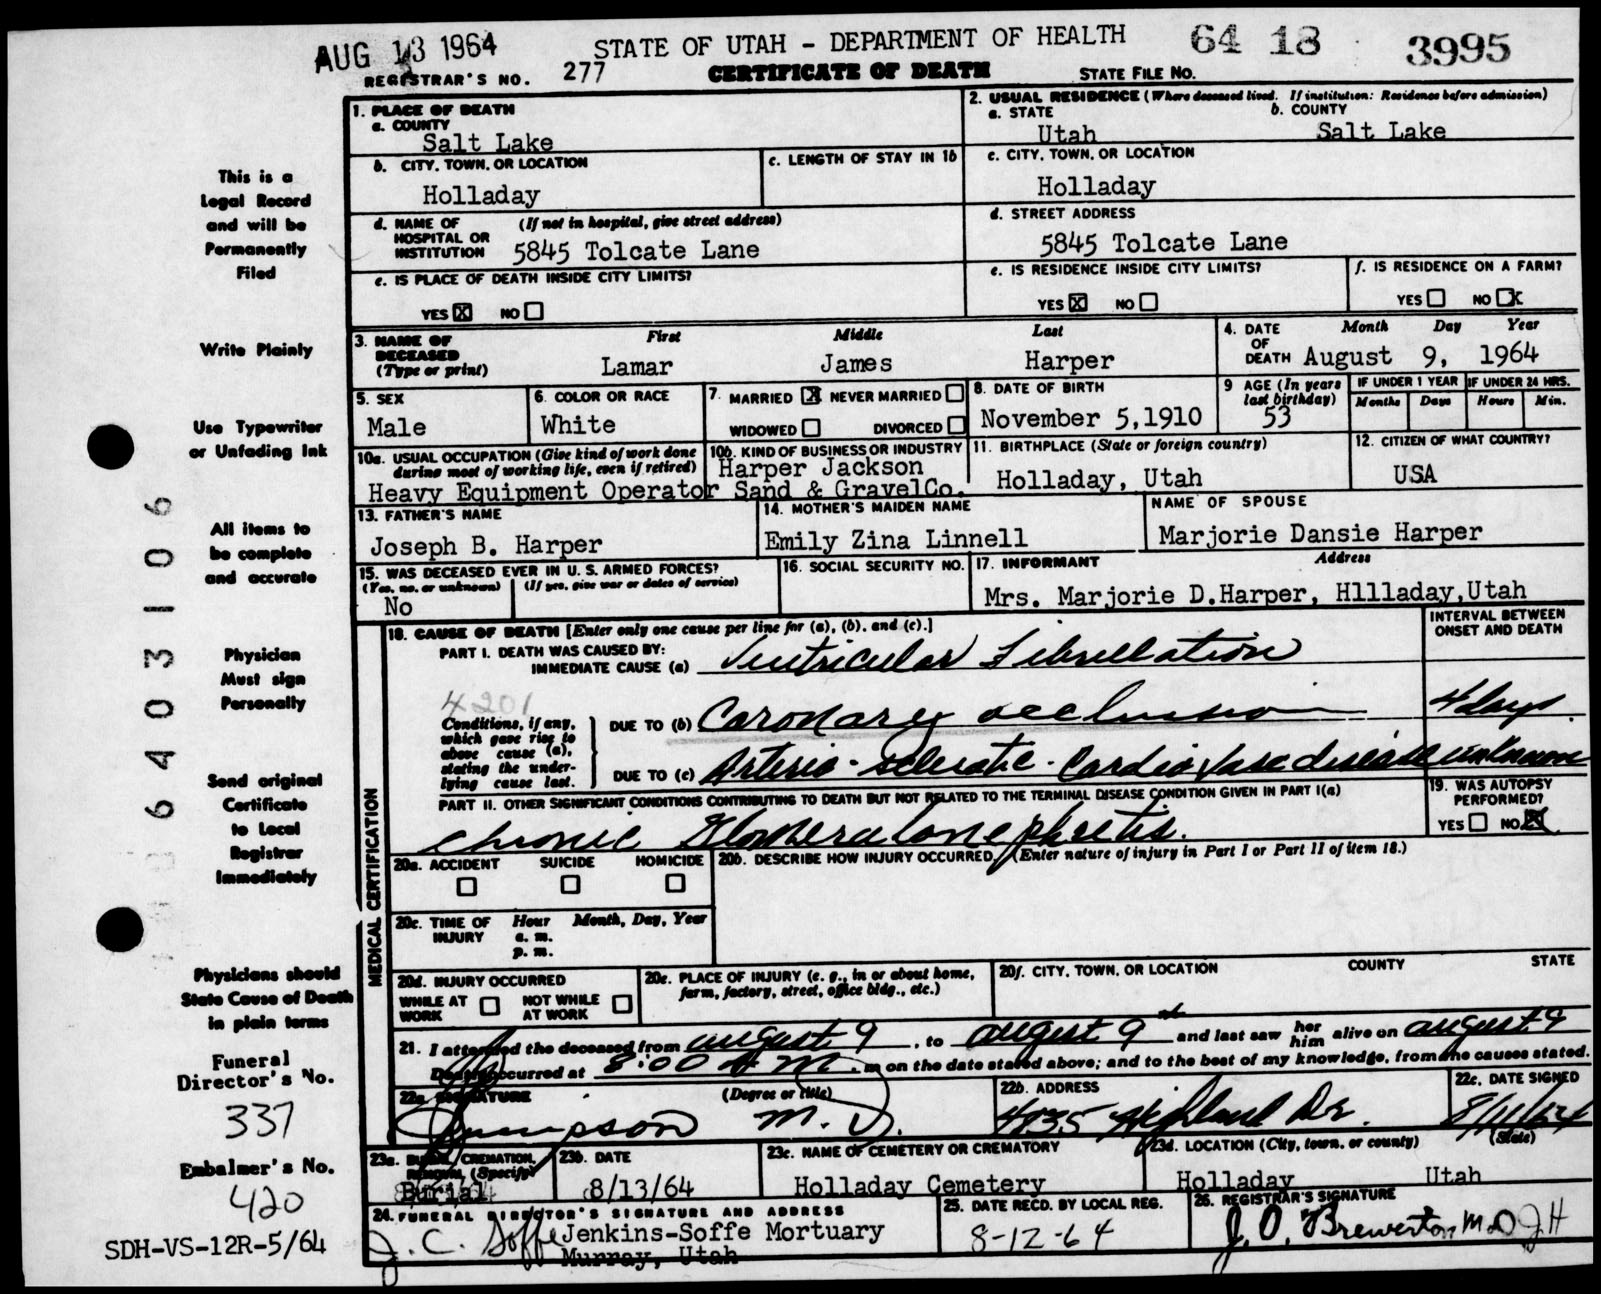 AUG 13 1964 STATE OF UTAH - DEPARTMENT OF HEALTH 64 18 3995
REGISTRAR'S NO. 277 CERTIFICATE OF DEATH STATE FILE NO.
1. PLACE OF DEATH
a. COUNTY
Salt Lake
2. USUAL RESIDENCE (Where deceased lived. If institution: Residence before admission)
a. STATE b. COUNTY
Utah Salt Lake
b. CITY, TOWN, OR LOCATION c. LENGTH OF STAY IN 1b
Holladay
c. CITY, TOWN, OR LOCATION
Holladay
d. NAME OF HOSPITAL OR INSTITUTION (If not in hospital, give street address)
5845 Tolcate Lane
d. STREET ADDRESS
5845 Tolcate Lane
e. IS PLACE OF DEATH INSIDE CITY LIMITS?
YES X NO
e. IS RESIDENCE INSIDE CITY LIMITS?
YES X NO
f. IS RESIDENCE ON A FARM?
YES NO X
3. NAME OF DECEASED (Type or print) First Middle Last
Lamar James Harper
4. DATE OF DEATH Month Day Year
August 9, 1964
5. SEX
Male
6. COLOR OR RACE
White
7. MARRIED X NEVER MARRIED
WIDOWED DIVORCED
8. DATE OF BIRTH
November 5,1910
9 AGE (In years last birthday)
53
IF UNDER 1 YEAR IF UNDER 24 HRS.
Months Days Hours Min.
10a. USUAL OCCUPATION (Give kind of work done during most of working life, even if retired)
Heavy Equipment Operator
10b. KIND OF BUSINESS OR INDUSTRY
Harper Jackson
Sand & GravelCo.
11. BIRTHPLACE (State or foreign country)
Holladay, Utah
12. CITIZEN OF WHAT COUNTRY?
USA
13. FATHER'S NAME
Joseph B. Harper
14. MOTHER'S MAIDEN NAME
Emily Zina Linnell
NAME OF SPOUSE
Marjorie Dansie Harper
15. WAS DECEASED EVER IN U. S. ARMED FORCES?
(Yes, no, or unknown) (If yes, give war or dates of service)
No
16. SOCIAL SECURITY NO.
17. INFORMANT Address
Mrs. Marjorie D.Harper, Hllladay,Utah
MEDICAL CERTIFICATION
18. CAUSE OF DEATH [Enter only one cause per line for (a), (b), and (c).]
INTERVAL BETWEEN ONSET AND DEATH
PART I. DEATH WAS CAUSED BY:
IMMEDIATE CAUSE (a) Ventricular Fibrillation
4201
Conditions, if any, which gave rise to above cause (a), stating the underlying cause last.
DUE TO (b) Coronary occlusion 4 days
DUE TO (c) Arterio-sclerotic-Cardiovasc disease unknown
PART II. OTHER SIGNIFICANT CONDITIONS CONTRIBUTING TO DEATH BUT NOT RELATED TO THE TERMINAL DISEASE CONDITION GIVEN IN PART I(a)
chronic Glomerulonephritis.
19. WAS AUTOPSY PERFORMED?
YES NO X
20a. ACCIDENT SUICIDE HOMICIDE
20b. DESCRIBE HOW INJURY OCCURRED. (Enter nature of injury in Part I or Part II of item 18.)
20c. TIME OF INJURY Hour Month, Day, Year
a. m.
p. m.
20d. INJURY OCCURRED
WHILE AT WORK NOT WHILE AT WORK
20e. PLACE OF INJURY (e. g., in or about home, farm, factory, street, office bldg., etc.)
20f. CITY, TOWN, OR LOCATION COUNTY STATE
21. I attended the deceased from august 9, to august 9th and last saw her him alive on august 9
Death occurred at 8:00 A M. m on the date stated above; and to the best of my knowledge, from the causes stated.
22a. SIGNATURE (Degree or title)
M. D.
22b. ADDRESS
4835 Highland Dr.
22c. DATE SIGNED
8/11/64
23a. BURIAL, CREMATION, REMOVAL (Specify)
Burial
23b. DATE
8/13/64
23c. NAME OF CEMETERY OR CREMATORY
Holladay Cemetery
23d. LOCATION (City, town, or county) (State)
Holladay Utah
24. FUNERAL DIRECTOR'S SIGNATURE AND ADDRESS
J. C. Soffe Jenkins-Soffe Mortuary
Murray, Utah
25. DATE RECD. BY LOCAL REG.
8-12-64
26. REGISTRAR'S SIGNATURE
J. O. Brewerton M.D. JH
This is a
Legal Record
and will be
Permanently
Filed
Write Plainly
Use Typewriter
or Unfading Ink
All items to
be complete
and accurate
Physician
Must sign
Personally
Send original
Certificate
to Local
Registrar
Immediately
Physicians should
State Cause of Death
in plain terms
Funeral
Director's No.
337
Embalmer's No.
420
SDH-VS-12R-5/64
6403106